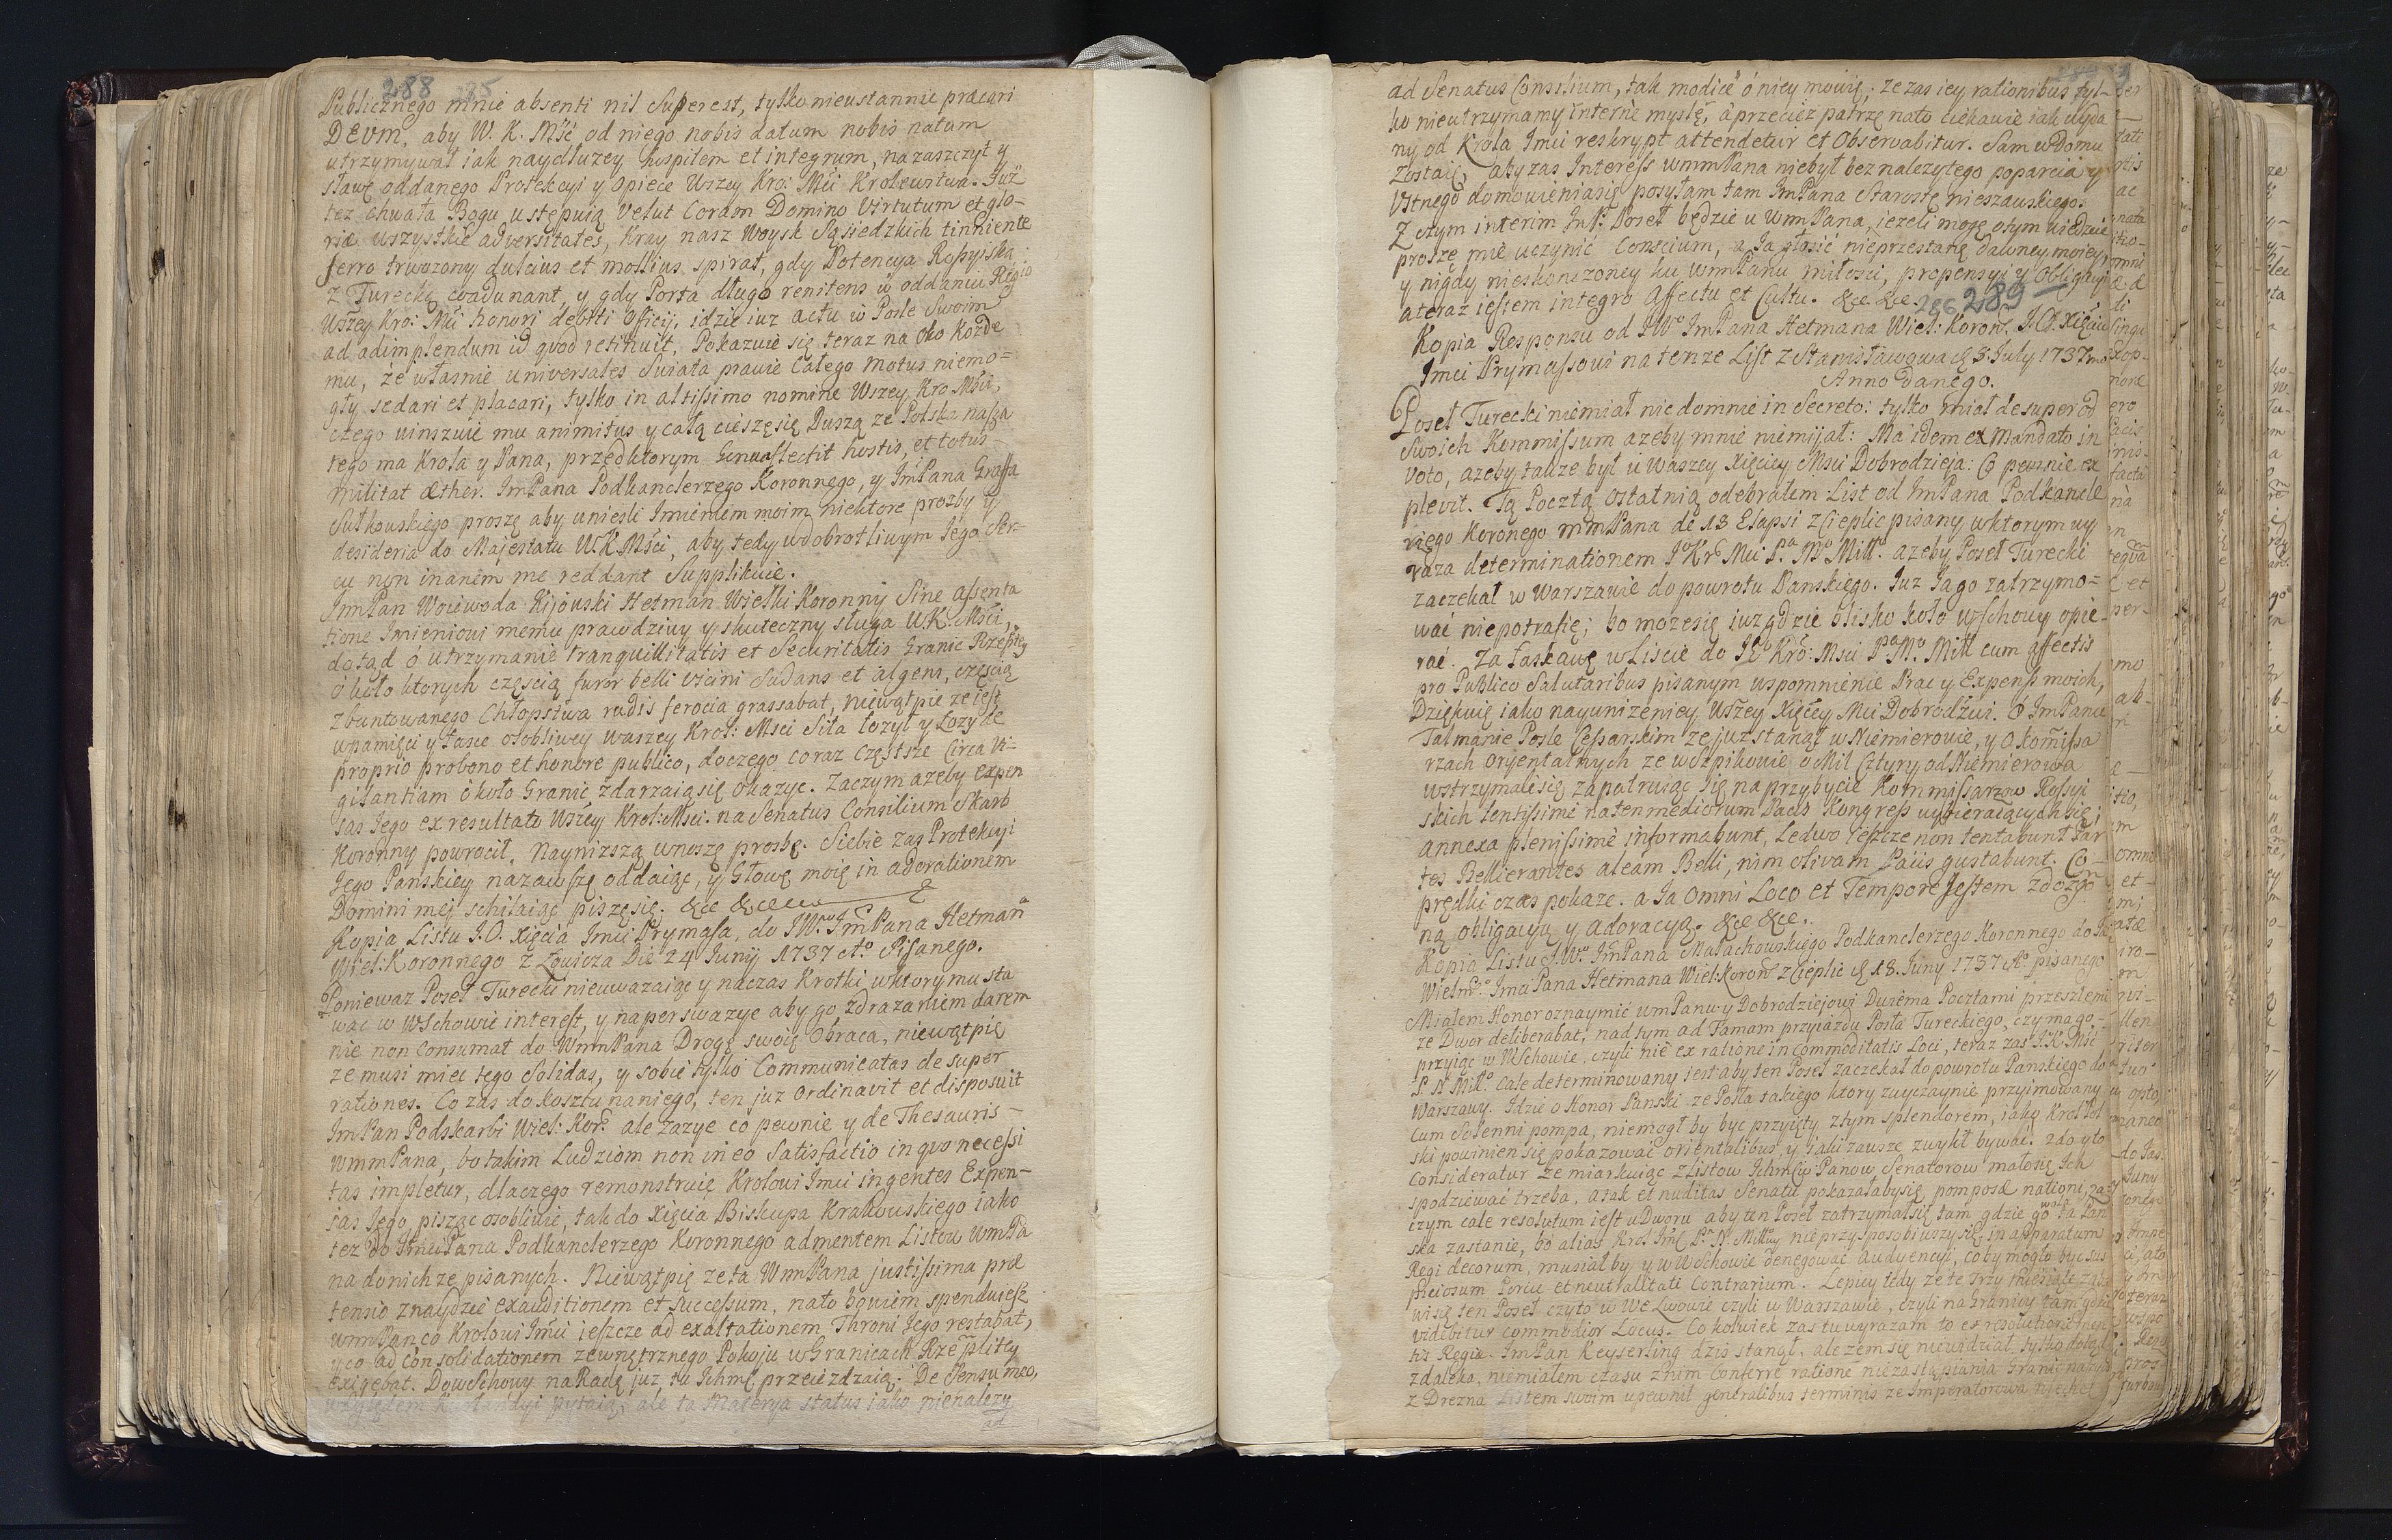 288
Publicznego mnie absenti nil Superest, tylko nieustannie præcari
DEUM, aby W. K. Mść od niego nobis datum nobis natum
utrzymywał iak naydłuzey hospitem et integrum, na zaszczyt y
sławę oddanego Protekcyi y Opiece Wszey Kro: Mći Krolewstwa. Już
tez chwała Bogu ustępuią velut Coram Domino Virtutum et glo-
riæ wszystkie adversitates, Kray nasz Woysk Sąsiedzkich tinniente
ferro trwozony dulcius et mollius spirat, gdy Potencya Rossyiska
z Turecką coadunant, y gdy Porta długo renitens w oddaniu Regio
Wszey Kro: Mći honori debiti Officij, idzie iuz actu w Posle Swoim
ad adimplendum id qvod retinuit. Pokazuie się teraz na Oko kozde
mu, ze własnie universales Swiata prawie Całego motus niemo=
gły sedari et placari, tylko in altissimo nomine Wszey Kro Mści,
czego winszuię mu animitus y całą cieszę się Duszą ze Polska nasza
tego ma Krola y Pana, przed ktorym genua flectit hostis, et totus
militat æther. Im Pana Podkanclerzego Koronnego, y Im Pana Graffa
Sułkowskiego proszę aby wniesli Imieniem moim niektore prozby y
desideria do Majestatu W. K Mści, aby tedy w dobrotliwym Jego Ser-
cu non inanem me reddant Supplikuię.
Imm Pan Woiewoda Kijowski Hetman Wielki Koronny Sine assenta
tione Imieniowi memu prawdziwy y skuteczny sługa W. K. Mści,
dotąd o utrzymanie tranquillitatis et Securitatis Granic Rzeptey
około ktorych częscią furor belli vicini Sudans et algens, częscią
zbuntowanego Chłopstwa rudis ferocia grassabat, niewątpię ze iest
w pamięci y łasce osobliwey waszey Krol: Msci Siła łozył y Łozy de
proprio pro bono et honore publico, do czego coraz Częstsze Circa Vi=
gilantiam około Granic zdarzaią się okazye. Zaczym azeby expen
sas Jego ex resultato Wszey Krol: Msci. na Senatus Consilium Skarb
Koronny powrocił, Nayniższą wnoszę prosbę. Siebie zas Protekcyi
Jego Panskiey na zawszę oddaiąc, y Głowę moię in adorationem
Domini mej schilaiąc piszę się. &ce &ce
Kopia Listu J. O. Xięcia Imci Prymasa, do JW. Im Pana Hetmana
Wiel: Koronnego z Łowicza Die 24 Juny 1737 Ao Pisanego.
Poniewaz Poseł Turecki nieuwazaiąc y na czas krotki, w ktorym usta
wac w Wschowie interest, y na perswazye aby go zdrazaniem darem
nie non Consumat do WmmPana Drogę swoię Obraca, niewątpię
ze musi miec tego Solidas, y sobie tylko Communicatas de super
rationes. Co zas do kosztu na niego, ten juz Ordinavit et disposuit
Im Pan Podskarbi Wiel: Kor: ale zazye co pewnie y de Thesauris
WmmPana, bo takim Ludziom non in eo Satisfactio in qvo necessi
tas impletur, dlaczego remonstruię Krolowi Imci ingentes Expen-
sas Jego, pisząc osobliwie, tak do Xięcia Biskupa Krakowskiego iako
tez do Imci Pana Podkanclerzego Koronnego ad mentem Listow WmPa
na do nich ze pisanych. Niewątpię ze ta WmmPana justissima præ
tensio znaydzie exauditionem et Successum, na to bowiem spenduiesz
WmmPan co Krolowi Imci ieszcze ad exaltationem Throni Jego restabat,
y co ad consolidationem zewnętrznego Pokoju w Granicach Rzeplitey
exigebat. Do wschowy na Radę juz tu Ichmć przeiezdzaią. De Sensu meo,
względem Kurlandyi pytaią, ale ta Materya status iako nienalezy
ad
ad Senatus Consilium, tak modice o niey mowię; ze zas iey rationibus tyl-
ko nieutrzymamy interne myslę, a przecież patrzę na to ciekawie iak wyda
ny od Krola Imci reskrypt attendetur et Observabitur. Sam w Domu
zostaię, aby zas Interess WmmPana niebył bez nalezytego poparcia y
Vstnego domowienia się posyłam tam ImPana Starostę nieszawskiego.
Z czym interim Im P. Poseł będzie u WmmPana, iezeli mogę o tym wiedziec
proszę mie uczynić Conscium, a Ja głosić nieprzestanę dawney, moiey,
y nigdy nieskonczoney ku WmmPanu miłosci, propensyi y Obligacyi
a teraz iestem integro Affectu et Cultu. &ce &ce. 286 289
Kopia Responsu od JWo Im Pana Hetmana Wiel: Koron. J. O. Xięciu
Imci Prymassowi na tenze List z Stanisławowa d 3 July 1737mo
Anno Danego.
Poseł Turecki niemiał nic do mnie in Secreto: tylko miał desuper od
Swoich Kommissum azeby mnie niemijał: Ma idem ex Mandato in
voto, azeby takze był u Waszey Xięciey Msci Dobrodzieja: Co pewnie ex
plevit. Tą Pocztą ostatnią odebrałem List od Im Pana Podkancle
rzego Koronego mmPana de 13 Elapsi z Cieplic pisany w ktorym wy
raza determinationem Jo Kr Mci Pa Mo Mitto. azeby Poseł Turecki
zaczekał w Warszawie do powrotu Panskiego. Juz Ja go zatrzymo=
wać niepotrafię; bo moze się iuz gdzie blisko koło Wschowy opie
rać. Za łaskawe w Liscie do J Kro: Msci Pa Mo Mitt cum affectis
pro Publico Salutaribus pisanym wspomnienie Prac y Expens moich,
Dziękuię iako nayunizeniey Wszey Xięcey Mci Dobrodziwi. O ImPanu
Talmanie Posle Cessarskim ze juz stanął w Niemierowie, y o kommissa
rzach Oryentalnych ze w Szpikowie o Mil Cztyry od Niemierowa
wstrzymali się zapatruiąc się na przybycie Kommissarzow Rossyi
skich lentissime na ten mediorum Pacis Kongress wybieraiących się;
annexa plenissime informabunt, Ledwo ieszcze non tentabunt Par
tes Bellierantes aleam Belli, nim olivam Pacis gustabunt. Co
prędki czas pokaze. a Ja Omni Loco et Tempore Jestem z dozgon
ną obligacyą y adoracyą. &ce &ce.
Kopia Listu JWo ImPana Małachowskiego Podkanclerzego Koronnego do Ja
Wielm Imci Pana Hetmana Wiel: Koron z Cieplic d 18. Juny 1737 Ao pisanego
Miałem Honor oznaymić WmPanu y Dobrodziejowi Dwiema Pocztami przeszłemi
ze Dwor deliberabat, nad tym ad Famam przyiazdu Posła Tureckiego, czy ma go
przyiąc w Wschowie, czyli nie ex ratione incommoditatis Loci, teraz zas J. K. Msć
P. N. Mitto. cale determinowany iest aby ten Poseł zaczekał do powrotu Panskiego do
Warszawy. Idzie o Honor Panski ze Posła takiego ktory zwyczaynie przyimowany
Cum Solenni pompa, niemogł by byc przyięty z tym splendorem, iako Krol Pol
ski powinien się pokazować orientalibus y iaki zausze zwykł bywać. 2do y to
Consideratur ze miarkuiąc z listow Ichmciw Panow Senatorow mało się Ich
spodziewać trzeba, a tak et nuditas Senatu pokazałaby się pomposæ nationi, za
czym cale resolutum iest u Dworu aby ten Poseł zatrzymał się tam gdzie go wola Pan
ska zastanie, bo alias Krol Imć P. N. Mitty nieprzysposobiwszy się, in apparatum
Regi decorum, musiał by y w Wschowie denegować audyencyi, co by mogło byc sus
piciosum Porcie et neutralitati Contrarium. Lepiey tedy ze te trzy miesiące za
wi się ten Poseł czyto w we Lwowie czyli w Warszawie, czyli na Granicy tam gdzie
videbitur commodior Locus. Co kolwiek zas tu wyrazam to est resolutioni men
tis Regiæ. ImPan Keyserling dzis stanął, ale zem się niewidział, tylko dotąd
z daleka, niemiałem czasu z nim conferre ratione niezastępiania Granic naszych
z Drezna Listem swoim upewnił generalibus terminis ze Imperatorowa